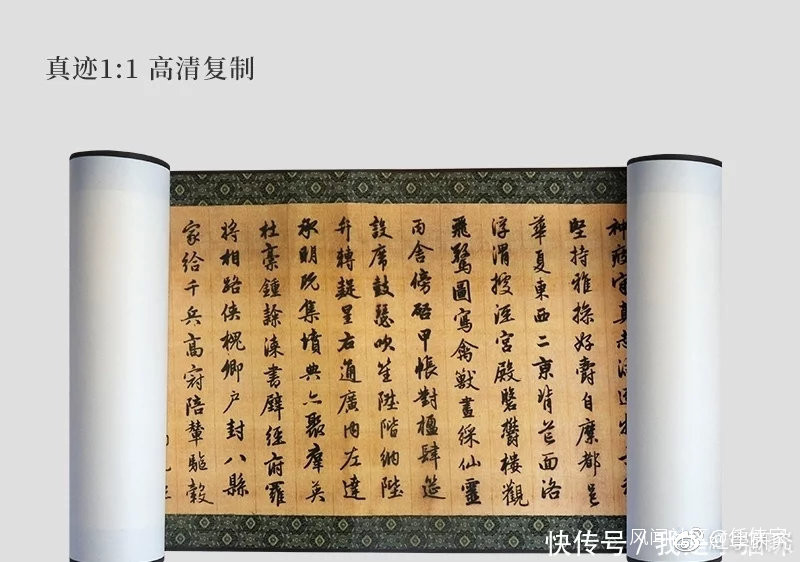 真迹1:1 高清复制
神疲守真志滿逐物
堅持雅操好爵自縻都邑
華夏東西二京背芒面洛
浮渭據涇宮殿盤鬱樓觀
飛驚圖寫禽獸畫綵仙靈
丙舍傍啓甲帳對楹肆筵
設席鼓瑟吹笙陞階納陛
弁轉疑星右通廣內左達
承明既集墳典亦聚羣英
杜稾鍾隸漆書壁經府羅
將相路俠槐卿戶封八縣
家給千兵高冠陪輦驅轂
快传号 / 我是